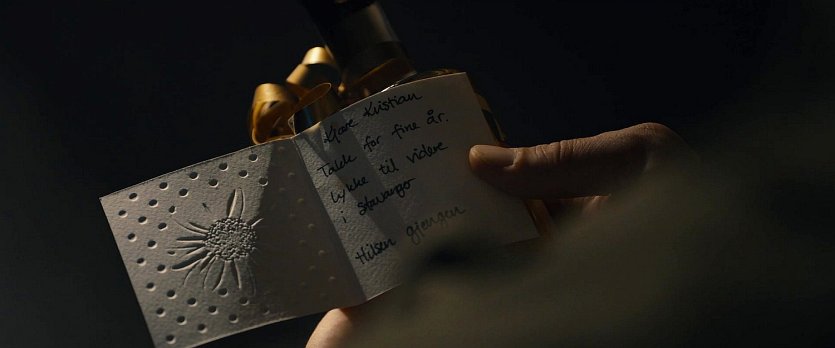 Kjære Kristian
Takk for fine år.
Lykke til videre
i Stavanger
Hilsen gjengen